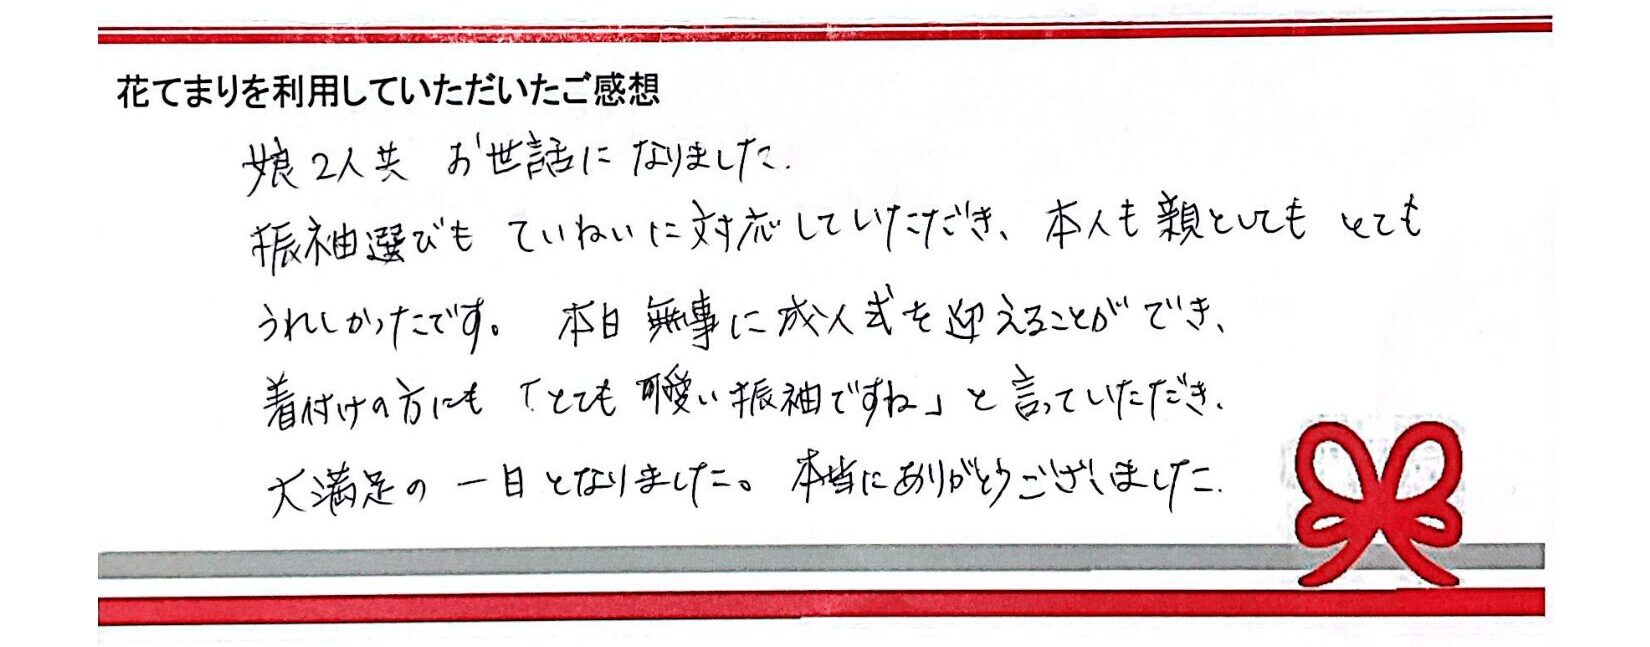 花てまりを利用していただいたご感想
娘2人共 お世話になりました.
振袖選びも ていねいに対応していただき、本人も親としても とても
うれしかったです。 本日無事に成人式を迎えることができ、
着付けの方にも「とても可愛い振袖ですね」と言っていただき、
大満足の一日となりました。本当にありがとうございました.